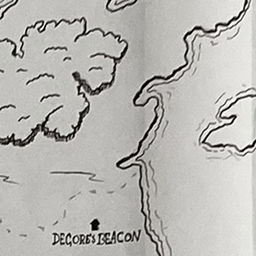 DEGORE'S BEACON